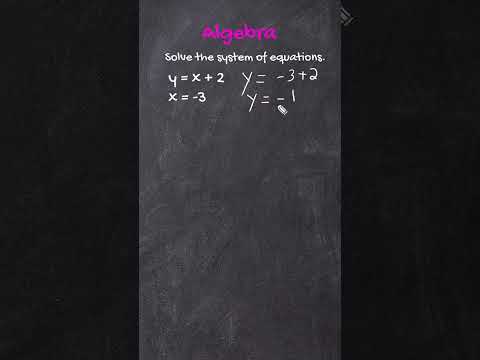 Algebra
Solve the system of equations.
y = x + 2
x = -3
y = -3+2
y = -1